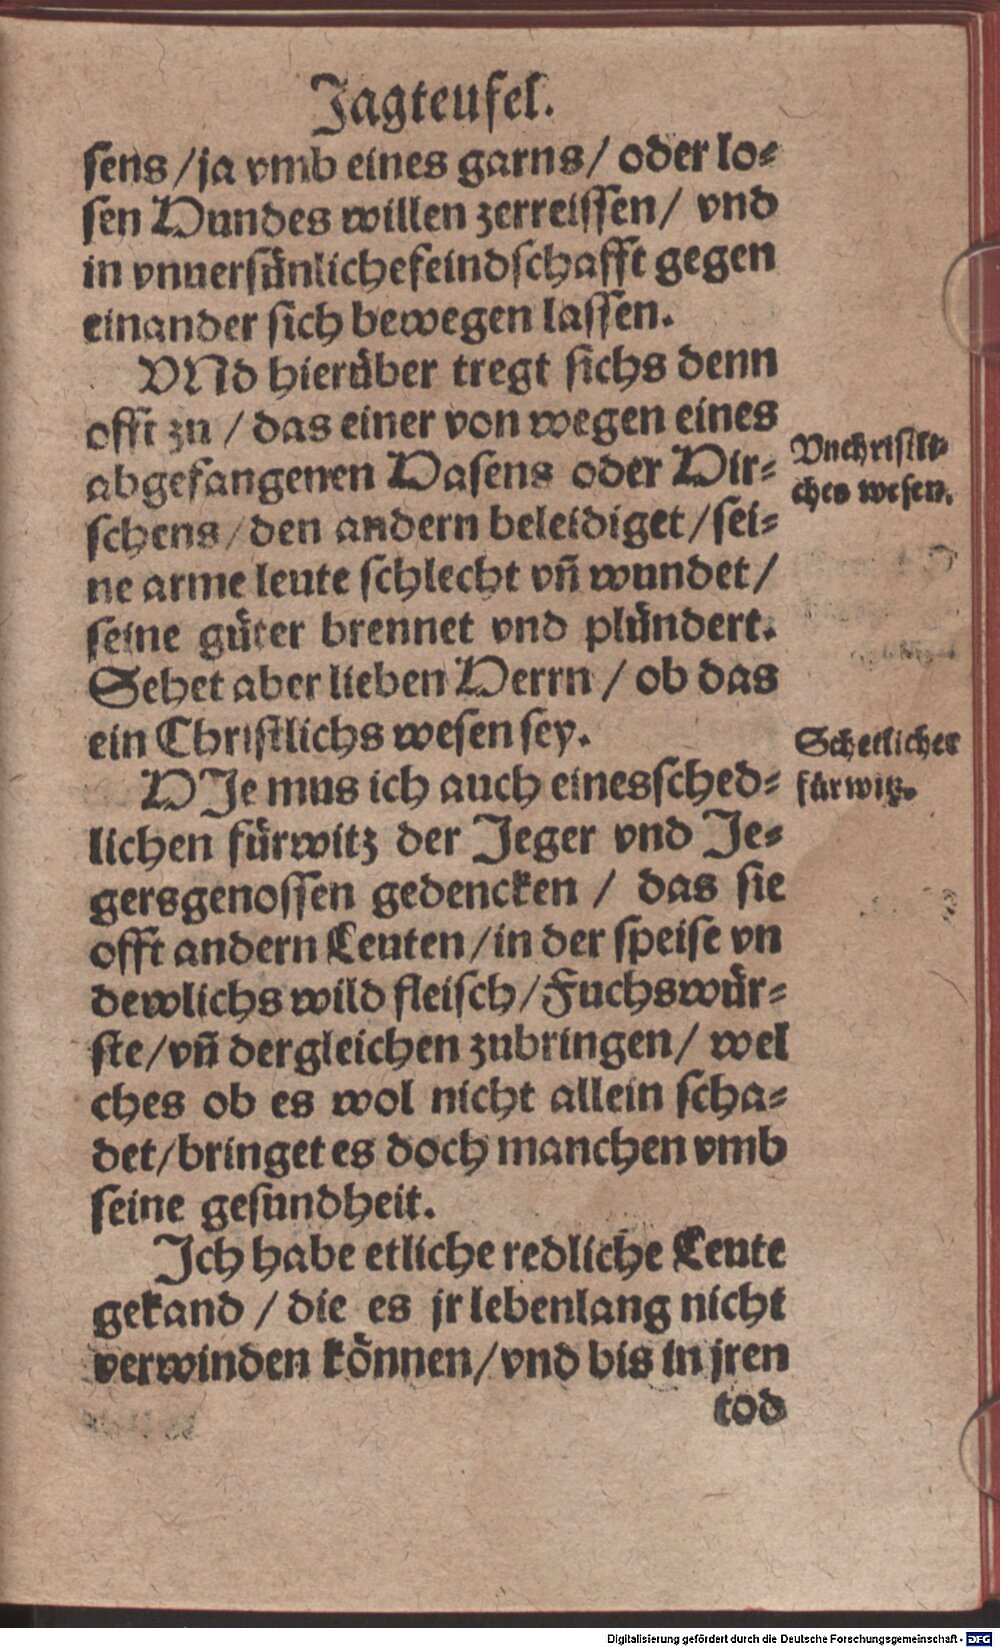 Jagteufel.
sens / ja vmb eines garns / oder lo⸗
sen Hundes willen zerreissen / vnd
in vnuersünlichefeindschafft gegen
einander sich bewegen lassen.
VNd hierüber tregt sichs denn
offt zu / das einer von wegen eines
abgefangenen Hasens oder Hir⸗
schens / den andern beleidiget / sei⸗
ne arme leute schlecht vñ wundet /
seine güter brennet vnd plündert.
Sehet aber lieben Herrn / ob das
ein Christlichs wesen sey.
Vnchristli⸗
ches wesen.
HJe mus ich auch einessched⸗
lichen fürwitz der Jeger vnd Je⸗
gersgenossen gedencken / das sie
offt andern Leuten / in der speise vn
dewlichs wild fleisch / Fuchswür⸗
ste / vñ dergleichen zubringen / wel
ches ob es wol nicht allein scha⸗
det / bringet es doch manchen vmb
seine gesundheit.
Schetlicher
fürwitz.
Ich habe etliche redliche Leute
gekand / die es jr lebenlang nicht
verwinden können / vnd bis in jren
tod
Digitalisierung gefördert durch die Deutsche Forschungsgemeinschaft - DFG